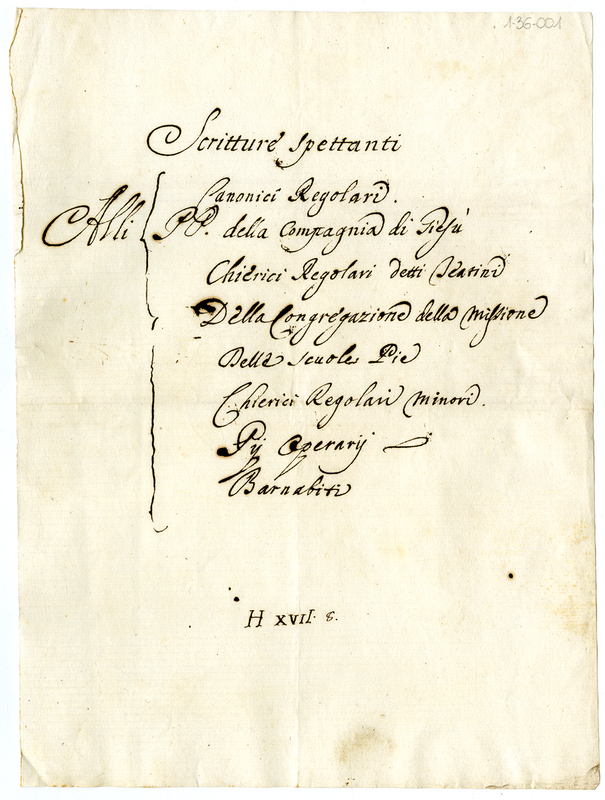 1-36-001
Scritture spettanti
Alli
Canonici Regolari.
PP. della Compagnia di Giesù
Chierici Regolari detti Teatini
Della Congregazione della Missione
Delle Scuole Pie
Chierici Regolari Minori.
Pij Operarij
Barnabiti
H XVII. 8.